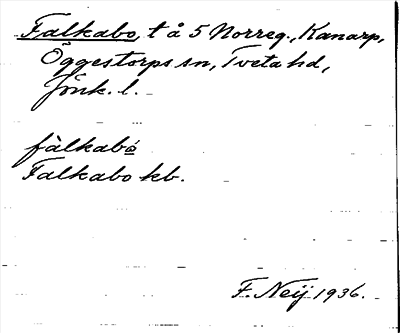 Falkabo, t å 5 Norreg., Kanarp,
Öggestorps sn, Tveta hd,
Jönk. l.
fàlkabo
Falkabo kb.
F. Neij 1936.